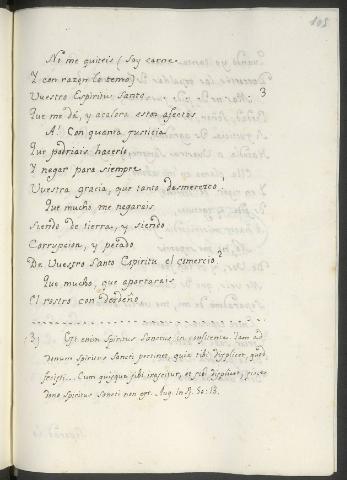 105
No me quiteis (soy carne
Y con razon lo temo)
Vuestro Espiritu Santo 3
Que me dá, y acalora estos afectos
A! Con quanta justicia
Que podriais hacerlo,
Y negar para siempre
Vuestra gracia, que tanto desmerezco.
Que mucho me negarais
Siendo de tierra, y siendo
Corrupcion, y pecado
De Vuestro Santo Espiritu el comercio?
Que mucho, que apartarais
El rostro con desdeño
3) Est enim Spiritus Sanctus in confitente. Iam ad
donum Spiritus Sancti pertinet, quia tibi displicet, quod
fecisti... Cum quisque sibi irascitur, et sibi displicet, sine
dono Spiritus Sancti non est. Aug. in Ps. 50: 13.